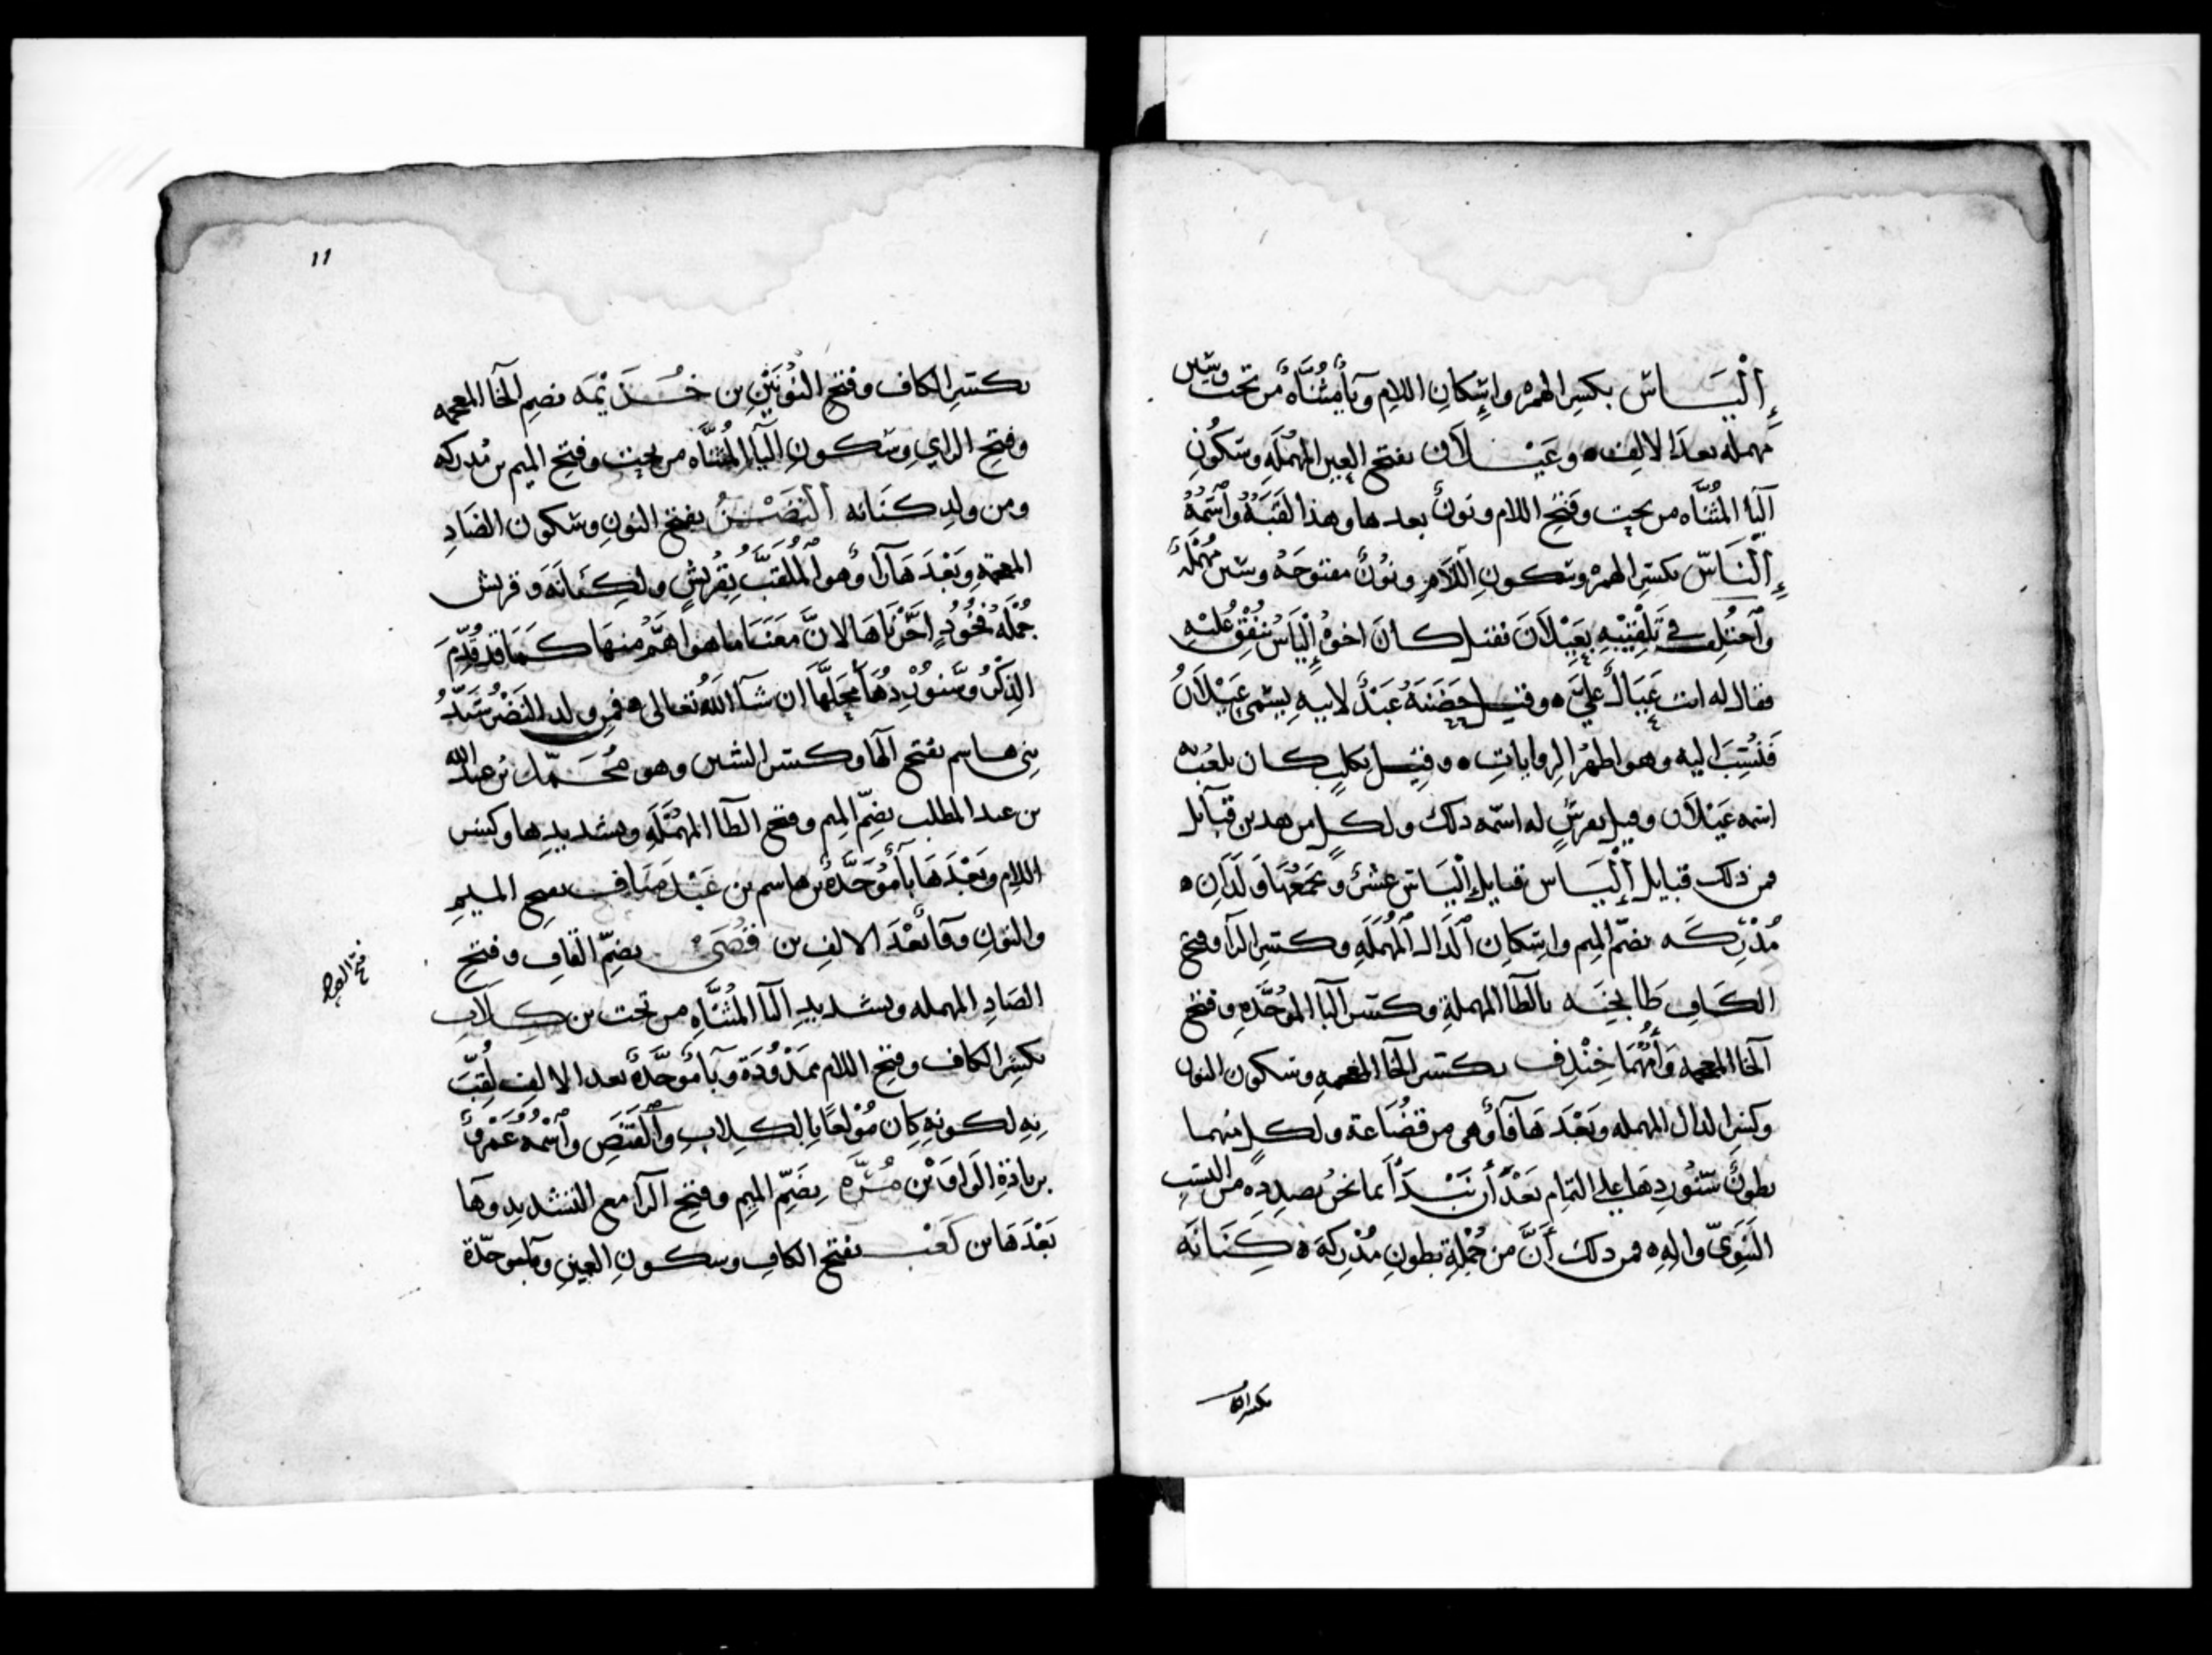 إِلْيَاس بكسر الهمز وإسكان اللام وياء مُثناة من تحت وسين
مهمله بعد الالف ٥ وعَيْلان بفتح العين المهملة وسكون
اليا المثناه من تحت وفتح اللام ونون بعدها وهذا لقبه واسمه
إِلْنَاسّ بكسر الهمز وسكون اللام ونون مفتوحة وسين مهملة
واختُلِف في تلقيبه بعيلان فقيل كان اخوهُ إلياس ينفق عليه
فقال له انت عيال عليّ ٥ وقيل حضنه عبدٌ لابيه يسمى عيلان
فنُسِبَ اليه وهو اظهر الروايات ٥ وقيل بكلبٍ كان يلعب به
اسمه عيلان وقيل بفرسٍ له اسمه ذلك ولكل من هدين قبايل
فمن ذلك قبايل إلياس فقبايل إلياس عشر ويجمعها ولدان ٥
مُدْرِكه بضمّ الميم واسكان الدال المهملة وكسر الرا وفتح
الكاف طابخه بالطا المهملة وكسر البا الموحَّدةِ وفتح
الخا المعجمه وأُمُّهُما خِنْدِف بكسر الخا المعجمه وسكون النون
وكسر الدال المهمله وبَعْدَها فاء وهى من قضاعة ولكل منهما
بطونٌ سنوردها على التمام بعد أن نبدأ بما نحن بصدده من النسب
النبويّ واله ٥ فمن ذلك أنَّ من جُمْلة بطون مُدْرِكة ٥ كِنَانَه
بكسر الكا
١١
بكسر الكاف وفتح النُّونَيْنِ بن خُزَيْمَه بضم الخا المعجمه
وفتح الزاي وسكون اليا المُثنَّاه من تحت وفتح الميم بن مُدركه
ومن ولد كنانه النضْر بفتح النون وسكون الضاد
المعجمة وبَعْدَها را وهو المُلقبُ بِقُرَيْش ولكنانة وقريش
جُمْلةُ فُخُوذٍ اخَّرْناها لانَّ مَعَنَا ما هو أهَمُّ منها كما قد قُدِّمَ
الذكرُ وسنُوْردُها محلَّها ان شا الله تعالى ٥ فمن ولد النضر سَيِّدُ
بنى هاسم بفتح الها وكسر الشين وهو مُحَمَّد بن عبد الله
بن عبد المطلب بضمّ الميم وفتح الطا المهملة وتشديدها وكسر
اللام وبَعْدَها باء مُوَحَّدة بن هاسم بن عَبْد مناف بفتح الميم
والنون وفا بعْدَ الالف بن قُصَيّ بضمّ القاف وفتح
الصاد المهمله وتشديد اليا المُثَنَّاه من تحت بن كِلاب
بكسر الكاف وفتح اللام ممْدُودَة وباء موحَّدة بعد الالف لُقِّبَ
بِهِ لكونهِ كان مُوْلعًا بالكلاب والقَنَصِ واسْمُهُ عَمْرو
بزيادة الواو بْن مُرَّه بضمِّ الميم وفتح الرا مع التشديد وها
بَعْدَها بن كَعْب بفتح الكاف وسكون العين وبا موحّدة